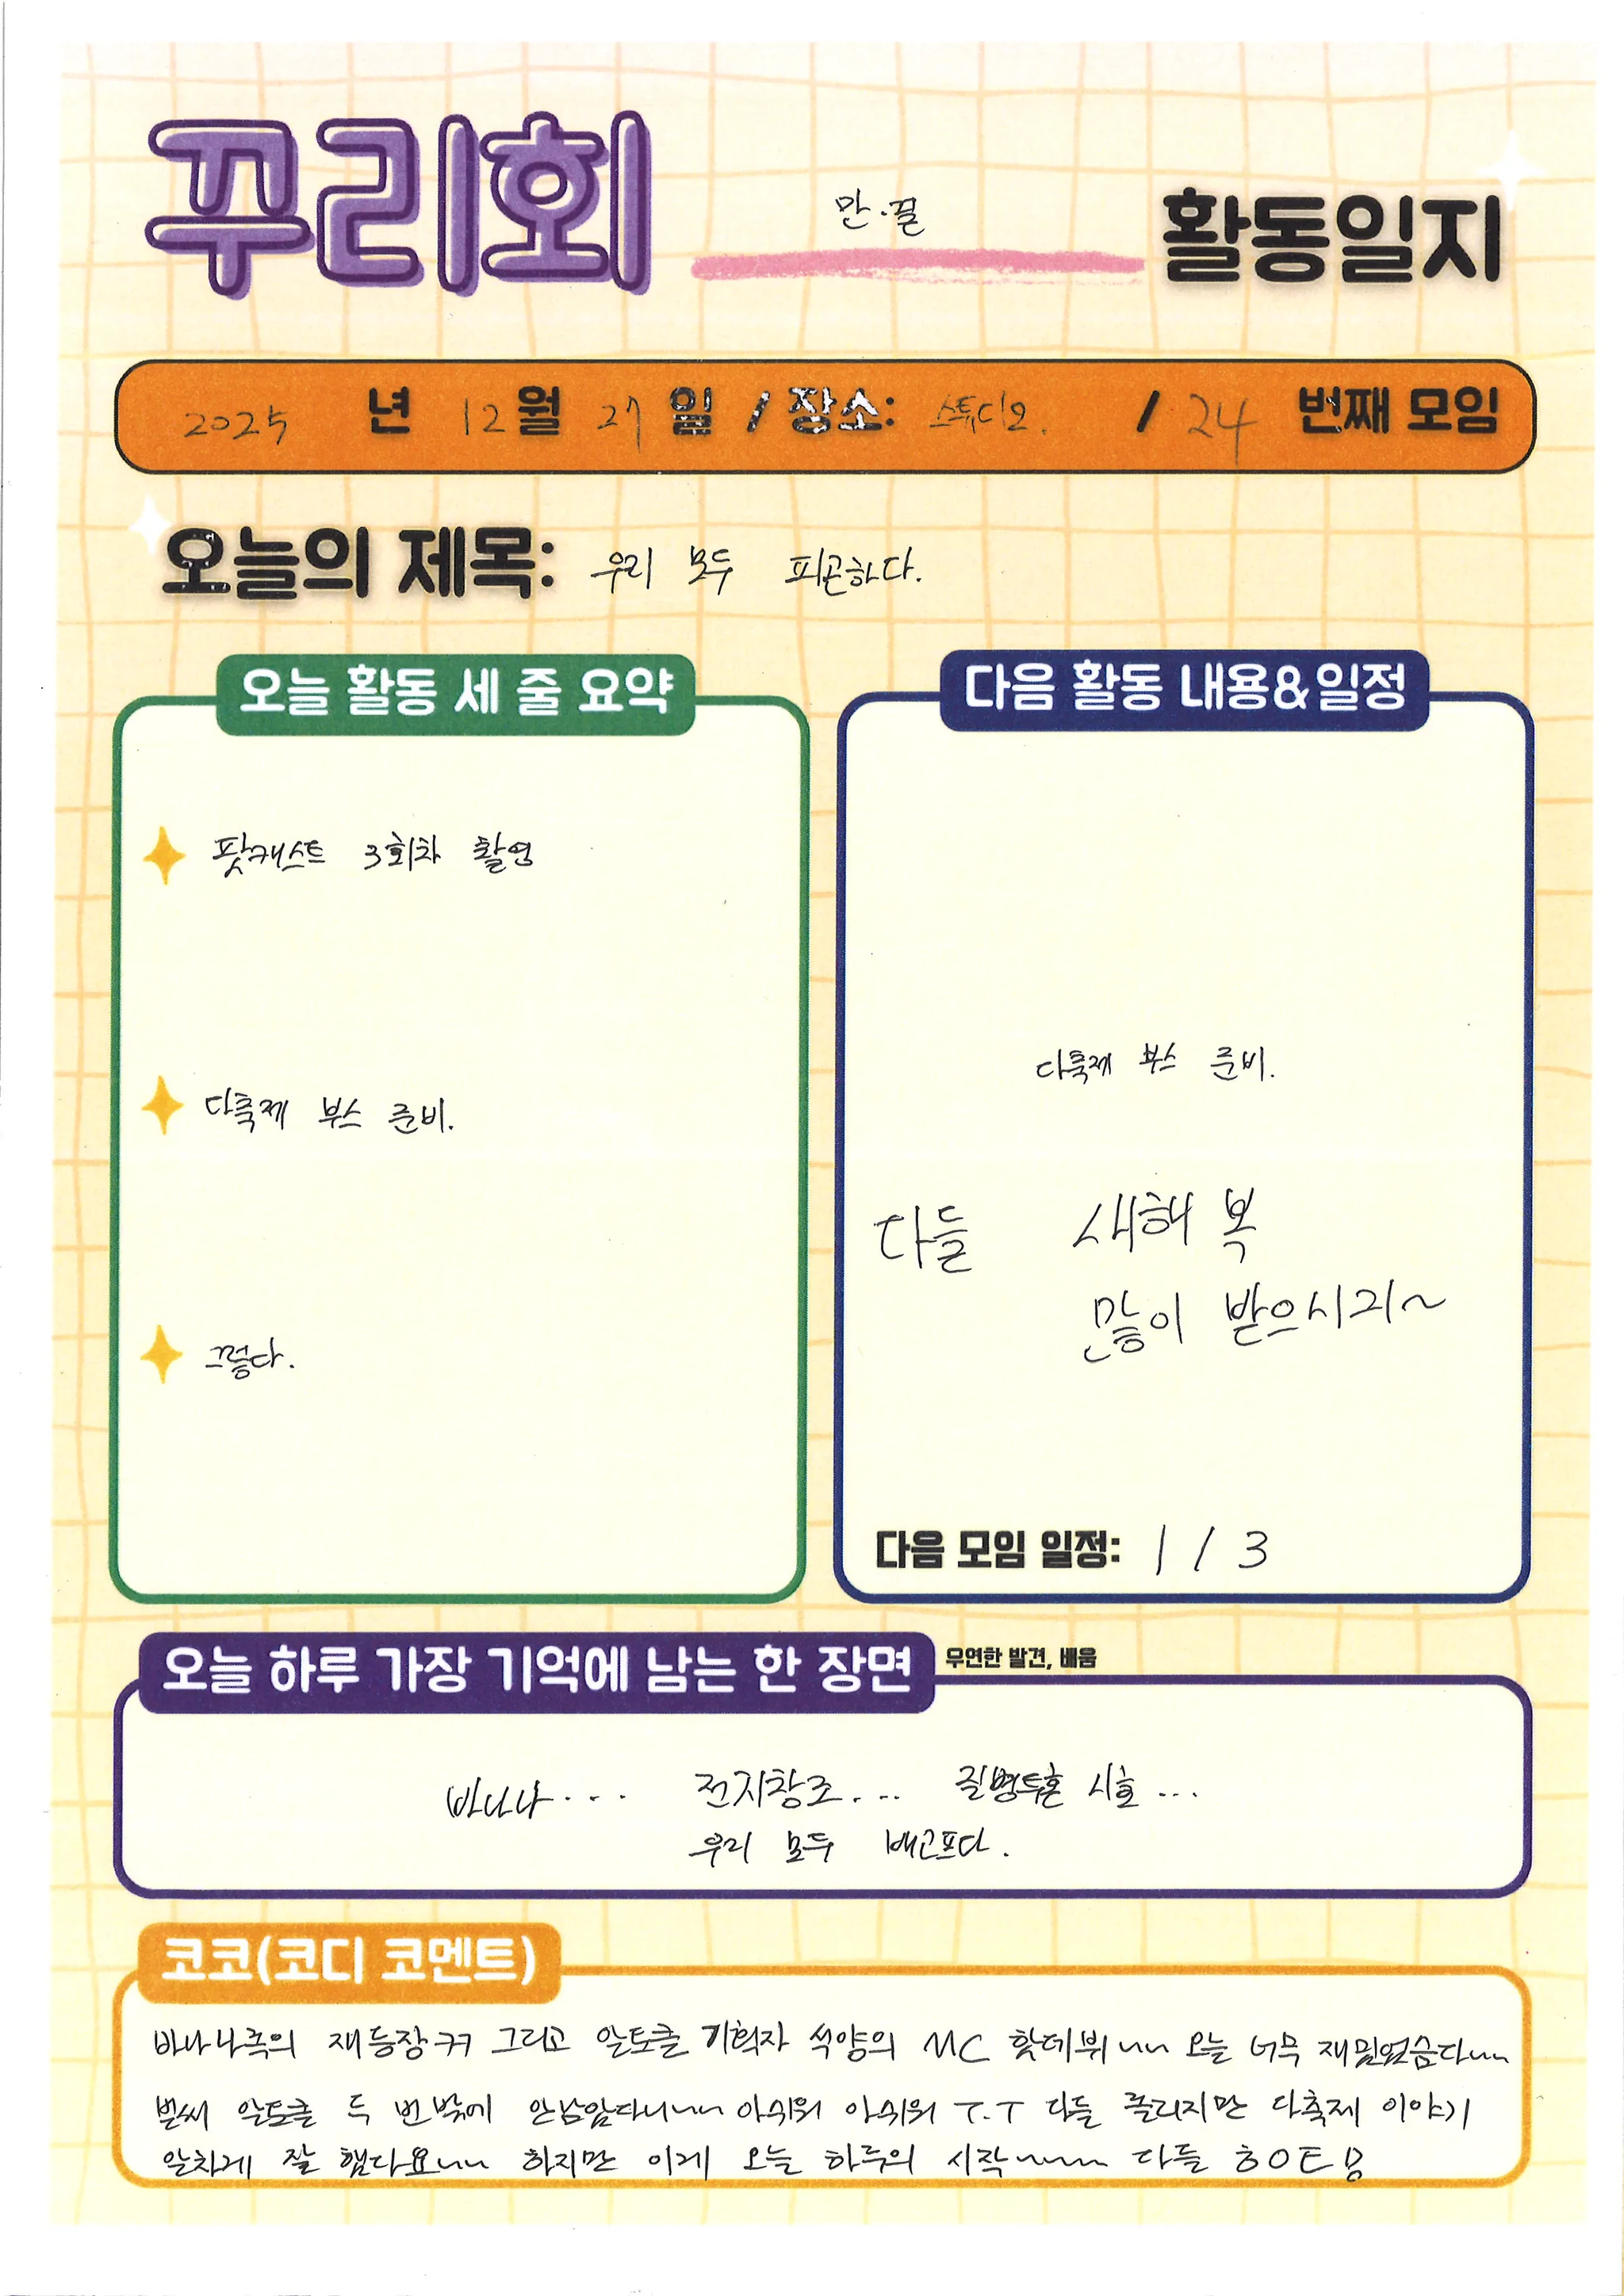 꾸리회 만·꿀 활동일지
2025 년 12 월 27 일 / 장소: 스튜디오. / 24 번째 모임
오늘의 제목: 우리 모두 피곤하다.
오늘 활동 세 줄 요약
팟캐스트 3회차 촬영
다축제 부스 준비.
그렇다.
다음 활동 내용&일정
다축제 부스 준비.
다들 새해 복
많이 받으시기~
다음 모임 일정: 1 / 3
오늘 하루 가장 기억에 남는 한 장면 우연한 발견, 배움
바나나... 전지창조... 질병투혼 시호...
우리 모두 배고프다.
코코(코디 코멘트)
바나나국의 재등장ㅋㅋ 그리고 알토클 기획자 석양의 MC 핫데뷔~~ 오늘 너무 재밌었슴다~~
벌써 알토클 두 번밖에 안남았다니~~ 아쉬워 아쉬워 T.T 다들 졸리지만 다축제 이야기
알차게 잘 했다요~~ 하지만 이게 오늘 하루의 시작~~~ 다들 ㅎㅇㅌㅇ